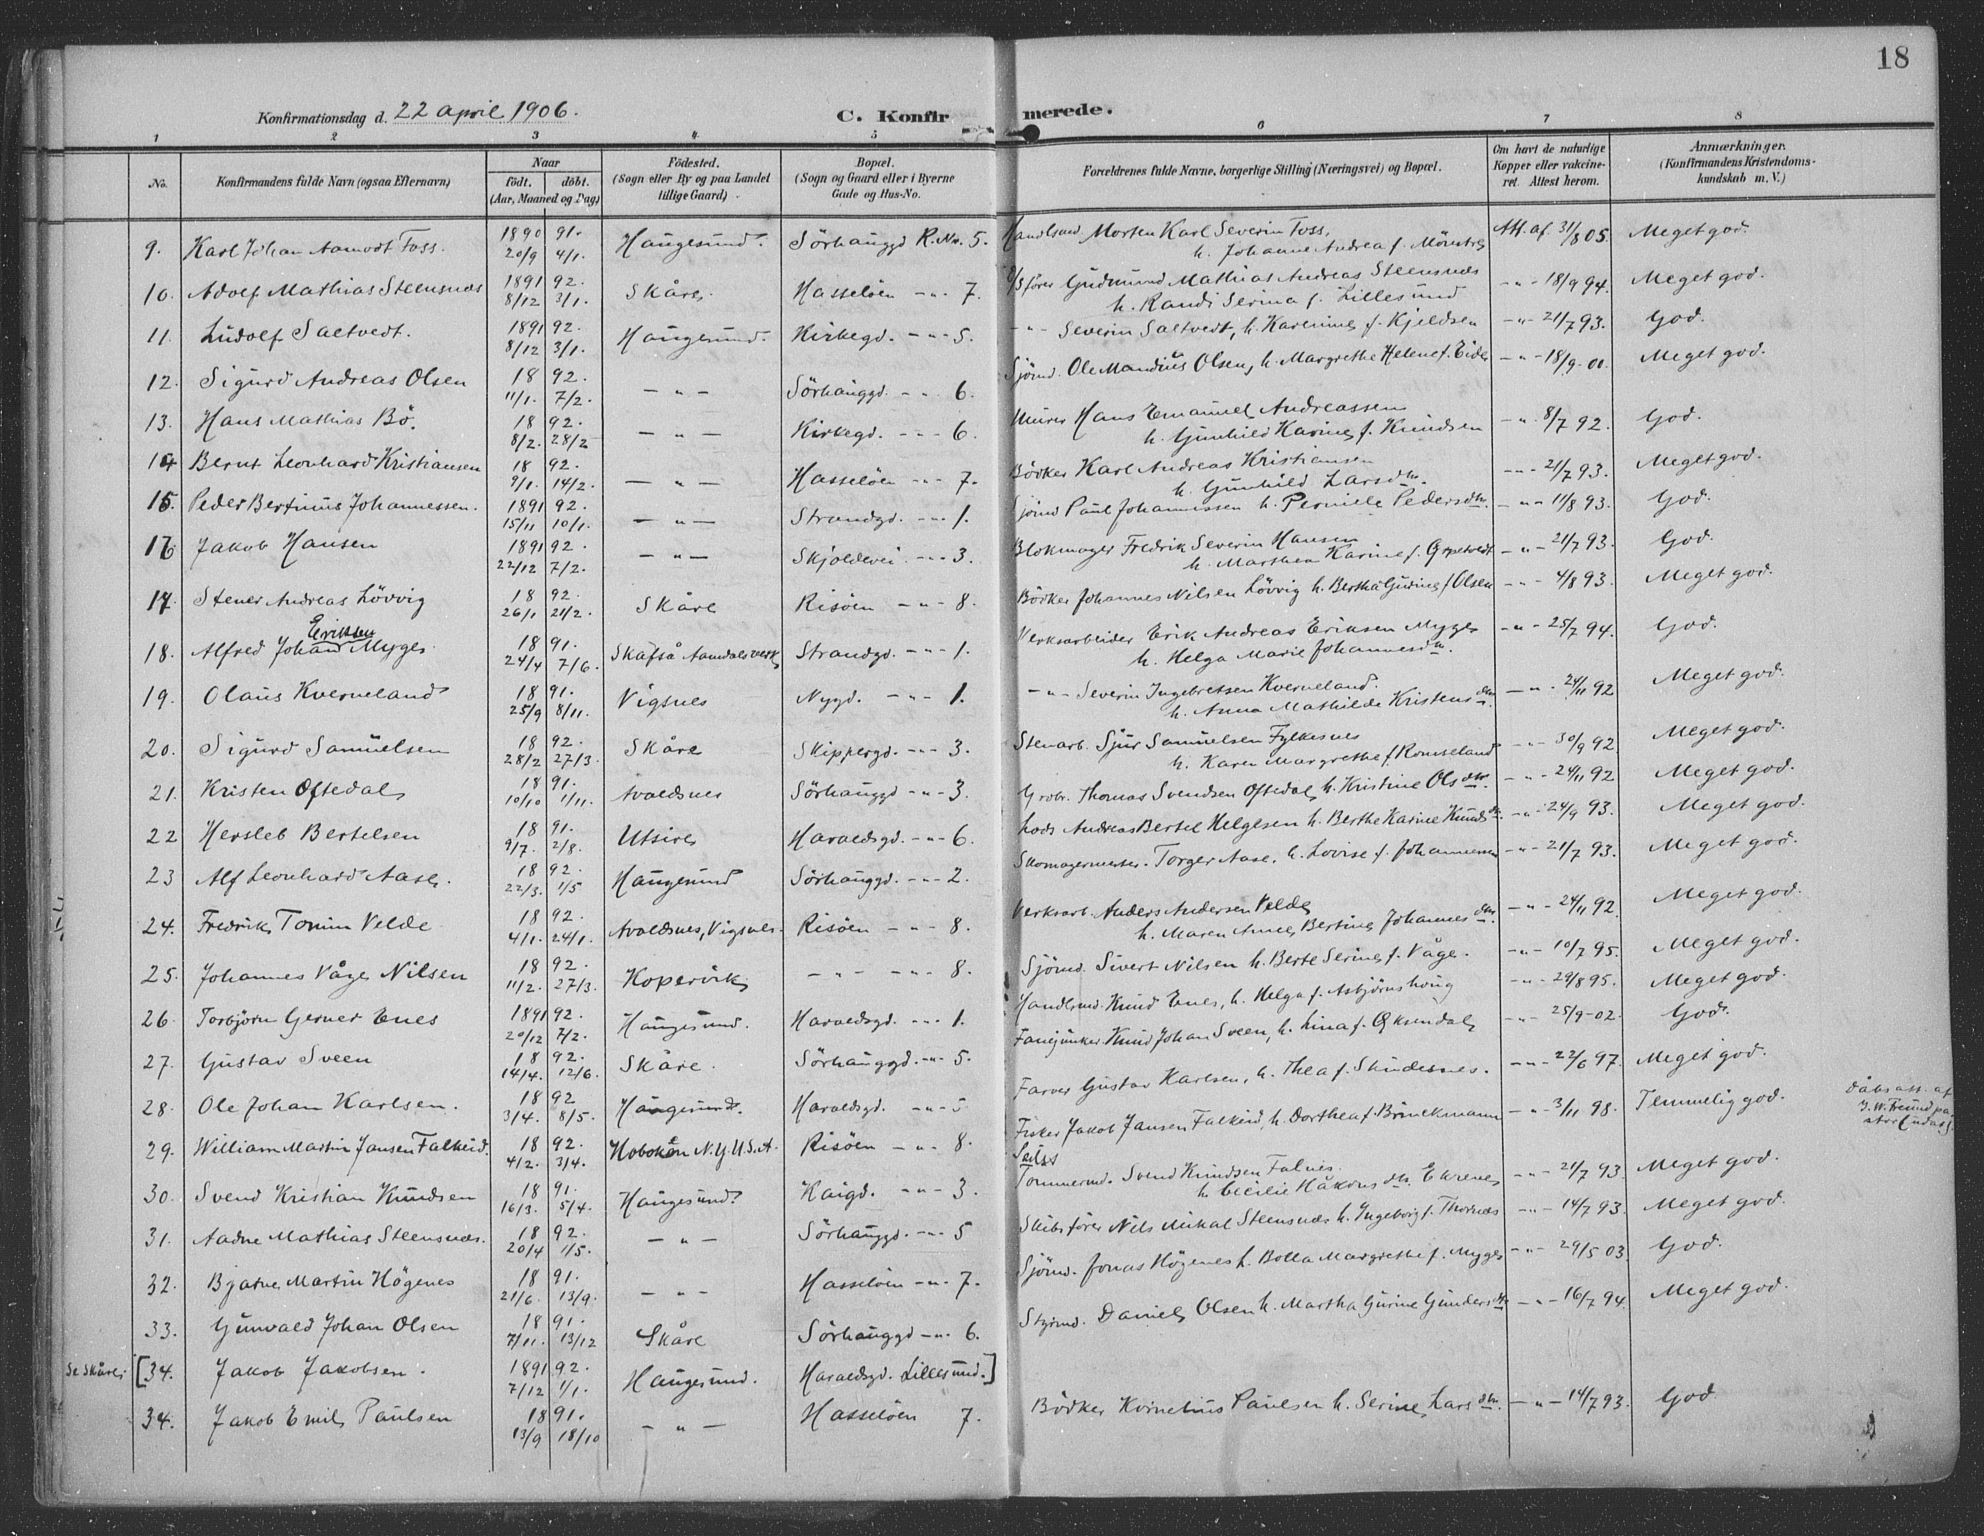 18
Konfirmationsdag d. 22 april 1906.
C. Konfirmerede.
1 2 3 4 5 6 7 8
No. Konfirmandens fulde Navn (ogsaa Efternavn) Naar født. døbt. (Aar, Maaned og Dag) Födested. (Sogn eller By og paa Landet tillige Gaard) Bopæl. (Sogn og Gaard eller i Byerne Gade og Hus-No. Forældrenes fulde Navne, borgerlige Stilling (Næringsvei) og Bopæl. Om havt de naturlige Kopper eller vakcineret. Attest herom. Anmærkninger. (Konfirmandens Kristendomskundskab m. V.)
9. Karl Johan Aamodt Foss. 1890 20/9 91. 4/1. Haugesund. Sörhauggd R.No. 5. Handlsmd Morten Karl Severin Foss, h. Johanne Andrea f. Mönstre Att. af 31/8 05. Meget god.
10. Adolf Mathias Steensnæs 1891 8/12 92. 3/1. Skåre. Hasseløen -"- 7. S/fører Gudmund Mathias Andreas Steensnæs h. Randi Serina f. Lillesund -"- 18/9 94. Meget god.
11. Ludolf Saltvedt. 1891 8/12 92. 3/1. Haugesund. Kirkegd. -"- 5. -"- Severin Saltvedt, h. Karenine f. Kjeldsen -"- 21/7 93. God.
12. Sigurd Andreas Olsen 18 11/1. 92. 7/2. -"- Sörhauggd. -"- 6. Sjömd. Ole Mandius Olsen, h. Margrethe Helene f. Eide -"- 18/9-00. Meget god.
13. Hans Mathias Bö. 18 8/2. 92. 28/2 -"- Kirkegd. -"- 6. Murer Hans Emanuel Andreassen h. Gunhild Karine f. Knudsen -"- 8/7 92. God.
14 Bernt Leonhard Kristiansen 18 9/1. 92. 14/2. -"- Hasseløen -"- 7. Bödker Karl Andreas Kristiansen h. Gunhild Larsdtr. -"- 21/7 93. Meget god.
15. Peder Bertinius Johannessen. 1891 15/11 92. 10/1. -"- Strandgd. -"- 1. Sjömd Paul Johannessen h. Pernille Pedersdtr. -"- 11/8 93. God.
16 Jakob Hansen 1891 22/12 92. 7/2. -"- Skjoldevei. -"- 3. Blokmager Fredrik Severin Hansen h. Marthea Karine f. Grætvedt -"- 21/7 93. God.
17. Stener Andreas Lövvig 18 26/1 92. 21/2. Skåre Risöen -"- 8. Bödker Johannes Nilsen Lövvig h. Bertha Gurine f Olsen -"- 4/8 93. Meget god.
18. Alfred Johan Eriksen Myge. 18 24/4 91. 7/6. Skafså Aamdalsverk Strandgd. -"- 1. Verksarbeider Erik Andreas Eriksen Myge h. Helga Marie Johannesdtr. -"- 25/7 94. God.
19. Olaus Kverneland 18 25/9 91. 8/11. Vigsnes Nygd. -"- 1. -"- Severin Ingebretsen Kverneland. h. Anna Mathilde Kristensdtr -"- 24/11 92 Meget god.
20. Sigurd Samuelsen 18 28/2 92. 27/3. Skåre Skippergd. -"- 3. Stenarb. Sjur Samuelsen Fylkesnes h. Karen Margrethe f. Romseland -"- 30/9 92 Meget god.
21. Kristen Oftedal 18 10/10 91. 1/11. Avaldsnes Sörhauggd -"- 3. Grobr. Thomas Svendsen Oftedal h. Kristine Olsdtr. -"- 24/11 92 Meget god.
22 Hersleb Bertelsen 18 9/7. 91. 2/8. Utsire Haraldsgd. -"- 6. Lods Andreas Bertel Helgesen h. Berthe Karine Knudsdtr. -"- 24/9 93. Meget god.
23 Alf Leonhard Aase. 18 22/3. 92. 1/5 Haugesund Sörhauggd. -"- 2. Skomagermester Torger Aase, h. Lovise f. Johannesen -"- 21/7 93. Meget god.
24. Fredrik Tonim Velde 18 4/1. 92. 24/1. Avaldsnes, Vigsnes. Risöen -"- 8. Verksarb. Anders Andersen Velde h. Maren Anne Bertine Johannesdtr. -"- 24/11 92. Meget god.
25. Johannes Våge Nilsen 18 11/2. 92. 27/3. Kopervik -"- -"- 8. Sjömd. Sivert Nilsen h. Berte Serine f. Våge. -"- 10/7 95. Meget god.
26. Torbjörn Gerner Enes 1891 20/12 92. 7/2. Haugesund. Haraldsgd. -"- 1. Handlsmd. Knud Enes, h. Helga f. Asbjörnshoug -"- 29/8 95. Meget god.
27. Gustav Sveen 18 14/4. 92. 12/6. Skåre. Sörhauggd. -"- 5 Fanejunker Knud Johan Sveen, h. Lina f. Øksendal -"- 25/9-02. God.
28. Ole Johan Karlsen. 18 3/4. 92 8/5. Haugesund. Haraldsgd. -"- 5 Farver Gustav Karlsen, h. Thea f. Skudesnes. -"- 22/6 97. Meget god.
29. William Martin Jansen Falkeid. 18 4/2. 92. 3/4. Hoboken N.Y. U.S.A. Risöen -"- 8. Fisker Jakob Jansen Falkeid, h. Dorthea f. Brinckmann -"- 3/11 98. Temmelig god. Dåbsatt. af
30. Svend Kristian Knudsen 18 16/3. 91. 5/4. Haugesund. Kaigd. -"- 3. Tömmermd. Svend Knudsen Falnes. h. Cecilie Håkonsdtr. Ekrene -"- 21/7 93 Meget god.
31. Aadne Mathias Steensnæs. 18 20/4 92. 1/5. -"- Sörhauggd. -"- 5 Skibsfører Nils Mikal Steensnæs h. Ingeborg f. Thornæs -"- 14/7 93. Meget god.
32. Bjarne Martin Högenes 18 21/6. 91. 13/9. -"- Hasseløen -"- 7. Sjömd. Jonas Högenes h. Bolla Margrethe f. Myge -"- 29/5 03. God.
33. Gunvald Johan Olsen 18 7/11. 91. 13/12 Skåre Sörhauggd -"- 6. Styrmd. Daniel Olsen h. Martha Gurine Gundersdtr -"- 16/7 94. Meget god.
Se Skåre [34. Jakob Jakobsen. 1891 7/12 92. 1/1. Haugesund. Haraldsgd. Lillesund.]
34. Jakob Emil Paulsen 18 13/9 91. 18/10 -"- Hasseløen 7. Bödker Kornelius Paulsen h. Serine Larsdtr. -"- 14/7 93. God